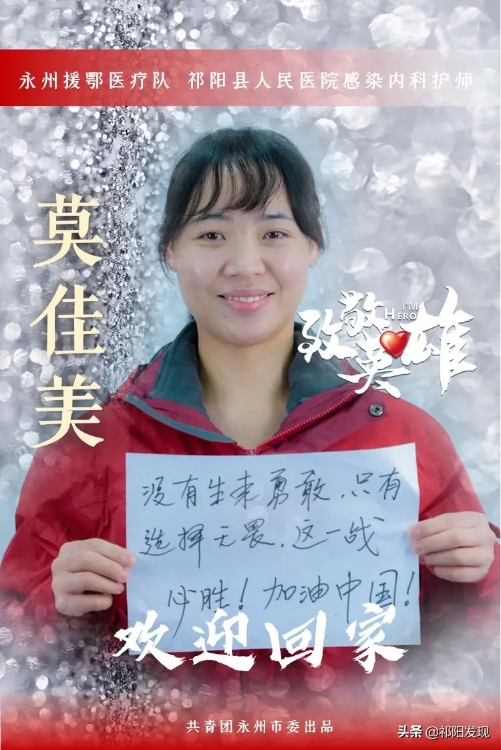 永州援鄂医疗队 祁阳县人民医院感染内科护师
莫佳美
致敬英雄
I'M
HERO
没有生来勇敢.只有
选择无畏.这一战
必胜!加油中国!
欢迎回家
共青团永州市委出品
头条 @祁阳发现